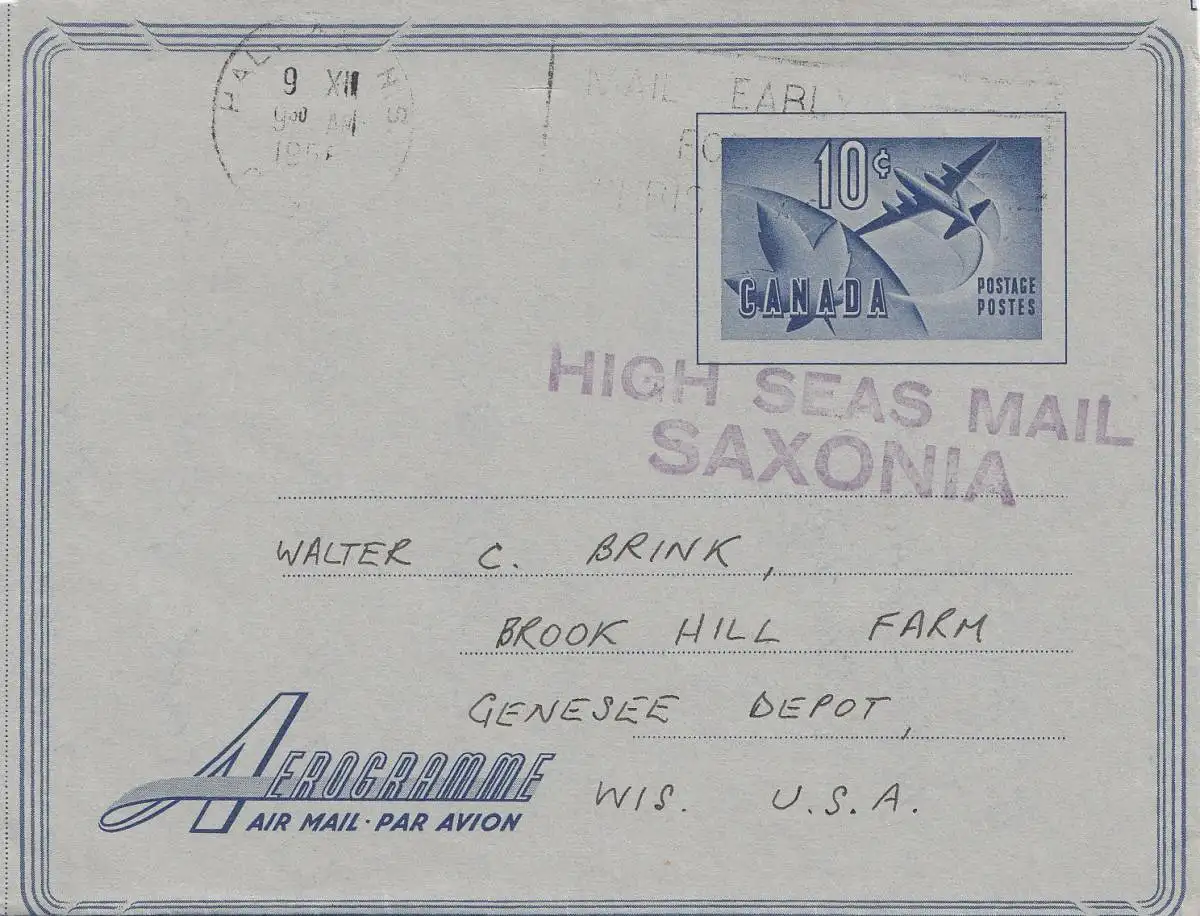 HAL
N S
9 XII
9⁰⁰ AM
MAIL EARLY
10¢
CANADA
POSTAGE
POSTES
HIGH SEAS MAIL
SAXONIA
WALTER C. BRINK,
BROOK HILL FARM
GENESEE DEPOT,
WIS. U.S.A.
AEROGRAMME
AIR MAIL · PAR AVION